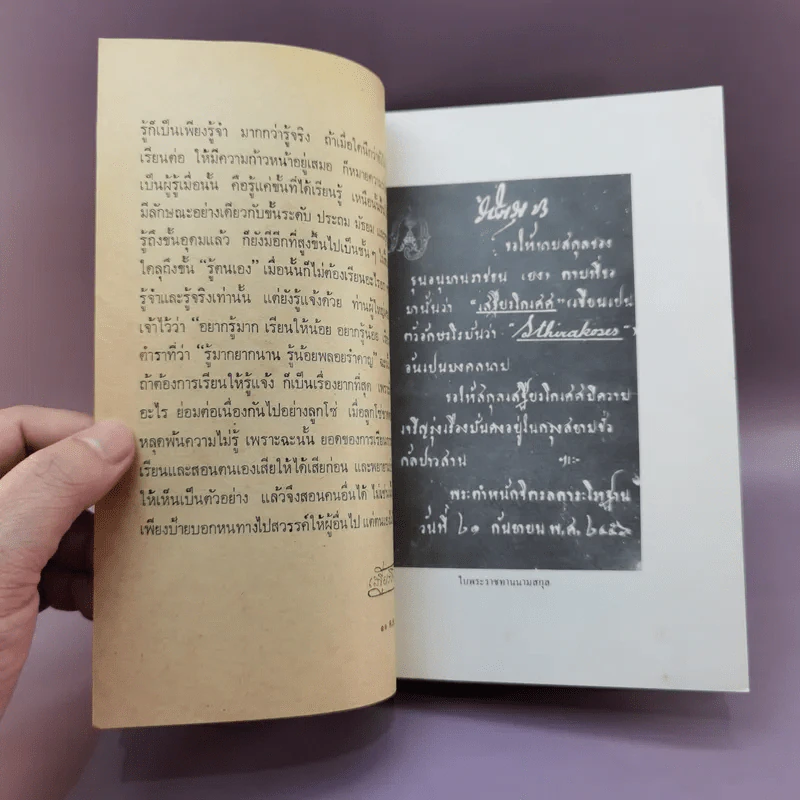 รู้ก็เป็นเพียงรู้จำ มากกว่ารู้จริง ถ้าเมื่อใดนึกว่า
เรียนต่อ ให้มีความก้าวหน้าอยู่เสมอ ก็หมายความ
เป็นผู้รู้เมื่อนั้น คือรู้แค่ขั้นที่ได้เรียนรู้ เหมือน
มีลักษณะอย่างเดียวกับขั้นระดับ ประถม มัธยม
รู้ถึงขั้นอุดมแล้ว ก็ยังมีอีกที่สูงขึ้นไปเป็นชั้นๆ
ใดลุถึงขั้น “รู้ตนเอง” เมื่อนั้นก็ไม่ต้องเรียนอะไร
รู้จำและรู้จริงเท่านั้น แต่ยังรู้แจ้งด้วย ท่านผู้ใหญ่
เจ้าไว้ว่า “อยากรู้มาก เรียนให้น้อย อยากรู้น้อย
ตำราที่ว่า “รู้มากยากนาน รู้น้อยพลอยรำคาญ”
ถ้าต้องการเรียนให้รู้แจ้ง ก็เป็นเรื่องยากที่สุด
อะไร ย่อมต่อเนื่องกันไปอย่างลูกโซ่ เมื่อลูกโซ่
หลุดพ้นความไม่รู้ เพราะฉะนั้น ยอดของการเรียน
เรียนและสอนตนเองเสียให้ได้เสียก่อน และพยายาม
ให้เห็นเป็นตัวอย่าง แล้วจึงสอนคนอื่นได้
เพียงป้ายบอกหนทางไปสวรรค์ให้ผู้อื่นไป
ขอให้นามสกุลของ
ขุนอนุมานราชธน (ยง) ตามที่ขอ
มานั้นว่า “เสฐียรโกเศศ” (เขียนเปน
ตัวอักษรโรมันว่า “Sthirakoses”)
อันเปนมงคลนาม
ขอให้สกุลเสฐียรโกเศศมีความ
เจริญรุ่งเรืองมั่นคงอยู่ในกรุงสยามชั่ว
กัลปาวสาน
พระตำหนักจิตรลดา
วันที่ ๒๑ กันยายน พ.ศ. ๒๔๕๖
ใบพระราชทานนามสกุล